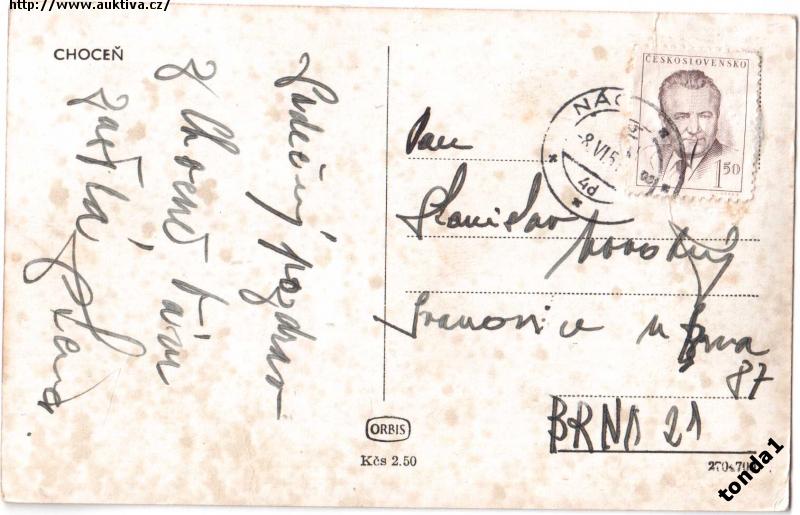 http://www.auktiva.cz/
CHOCEŇ
Srdečný pozdrav
z Chocně Vám
zasílá
ČESKOSLOVENSKO
1 50
NÁC
-8.VI.5
4d
Pan
Stanislav Novotný
Ivanovice u Brna
87
BRNO 21
ORBIS
Kčs 2.50
tonda1